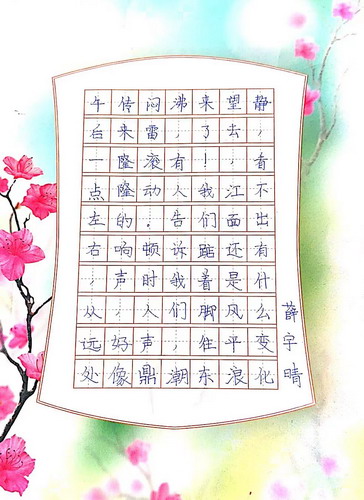 午后一点左右，从远处
传来隆隆的响声，好像
闷雷滚动。顿时人声鼎
沸，有人告诉我们，潮
来了！我们踮着脚往东
望去，江面还是风平浪
静，看不出有什么变化
薛字晴